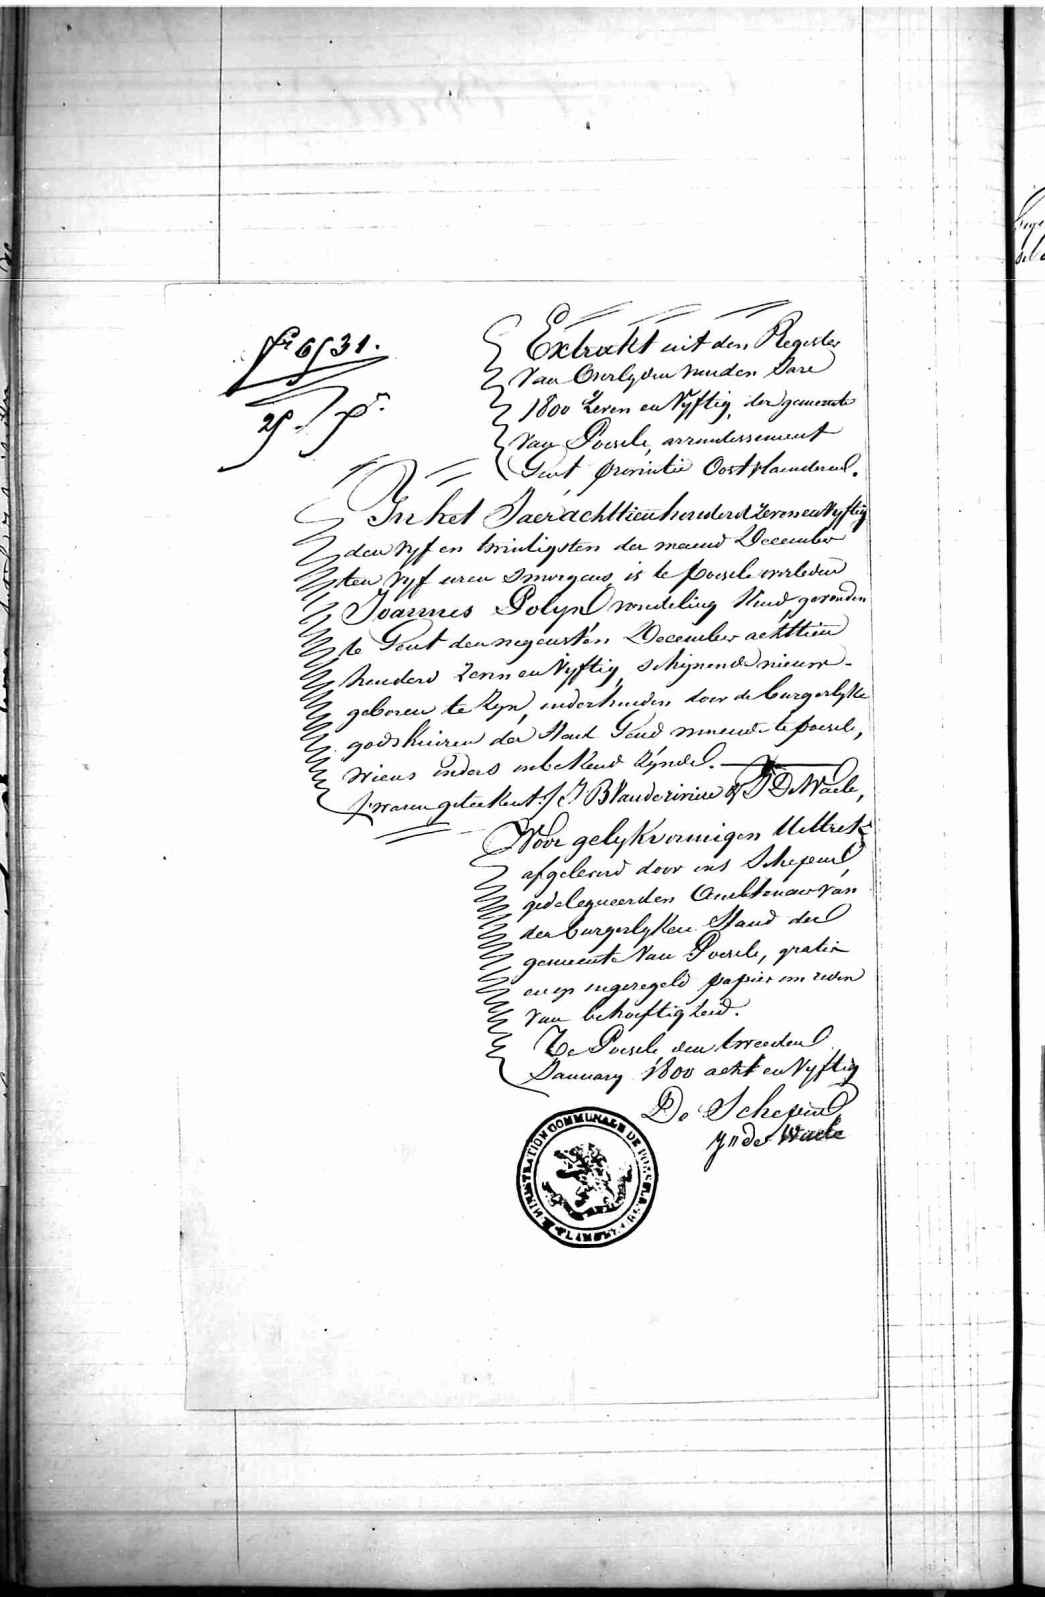 6531.
Extrakt uit den Register
Van Overlyden van den Jare
1800 Zeven en Vyftig, der gemeente
van Poesele, arrondissement
Gent provintie Oostvlaenderen.
In het Jaer achttien honderd Zeven en Vyftig
den vyf en twintigsten der maend December
ten vyf uren smorgens, is te poesele overleden
Joannes Polyn vondeling Kind, gevonden
te Gent den negensten December achttien
honderd Zeven en Vyftig, schynende nieuw-
geboren te Zyn, onderhouden door de burgerlyke
godshuizen der Stad Gend wonende te poesele,
wiens ouders onbekend Zynde.
waren geteekent: J B Vandeviviere & De Waele,
Voor gelykvormigen Uittrek
afgeleverd door ons Schepene,
gedelegueerden Ambtenaer van
den burgerlyken Stand der
gemeente Van Poesele, gratis
en op ongezegeld papier om reden
van behoeftigheid.
Te Poesele den tweeden
January 1800 acht en Vyftig
De Schepene
de Waele
ADMINISTRATION COMMUNALE DE POESELE